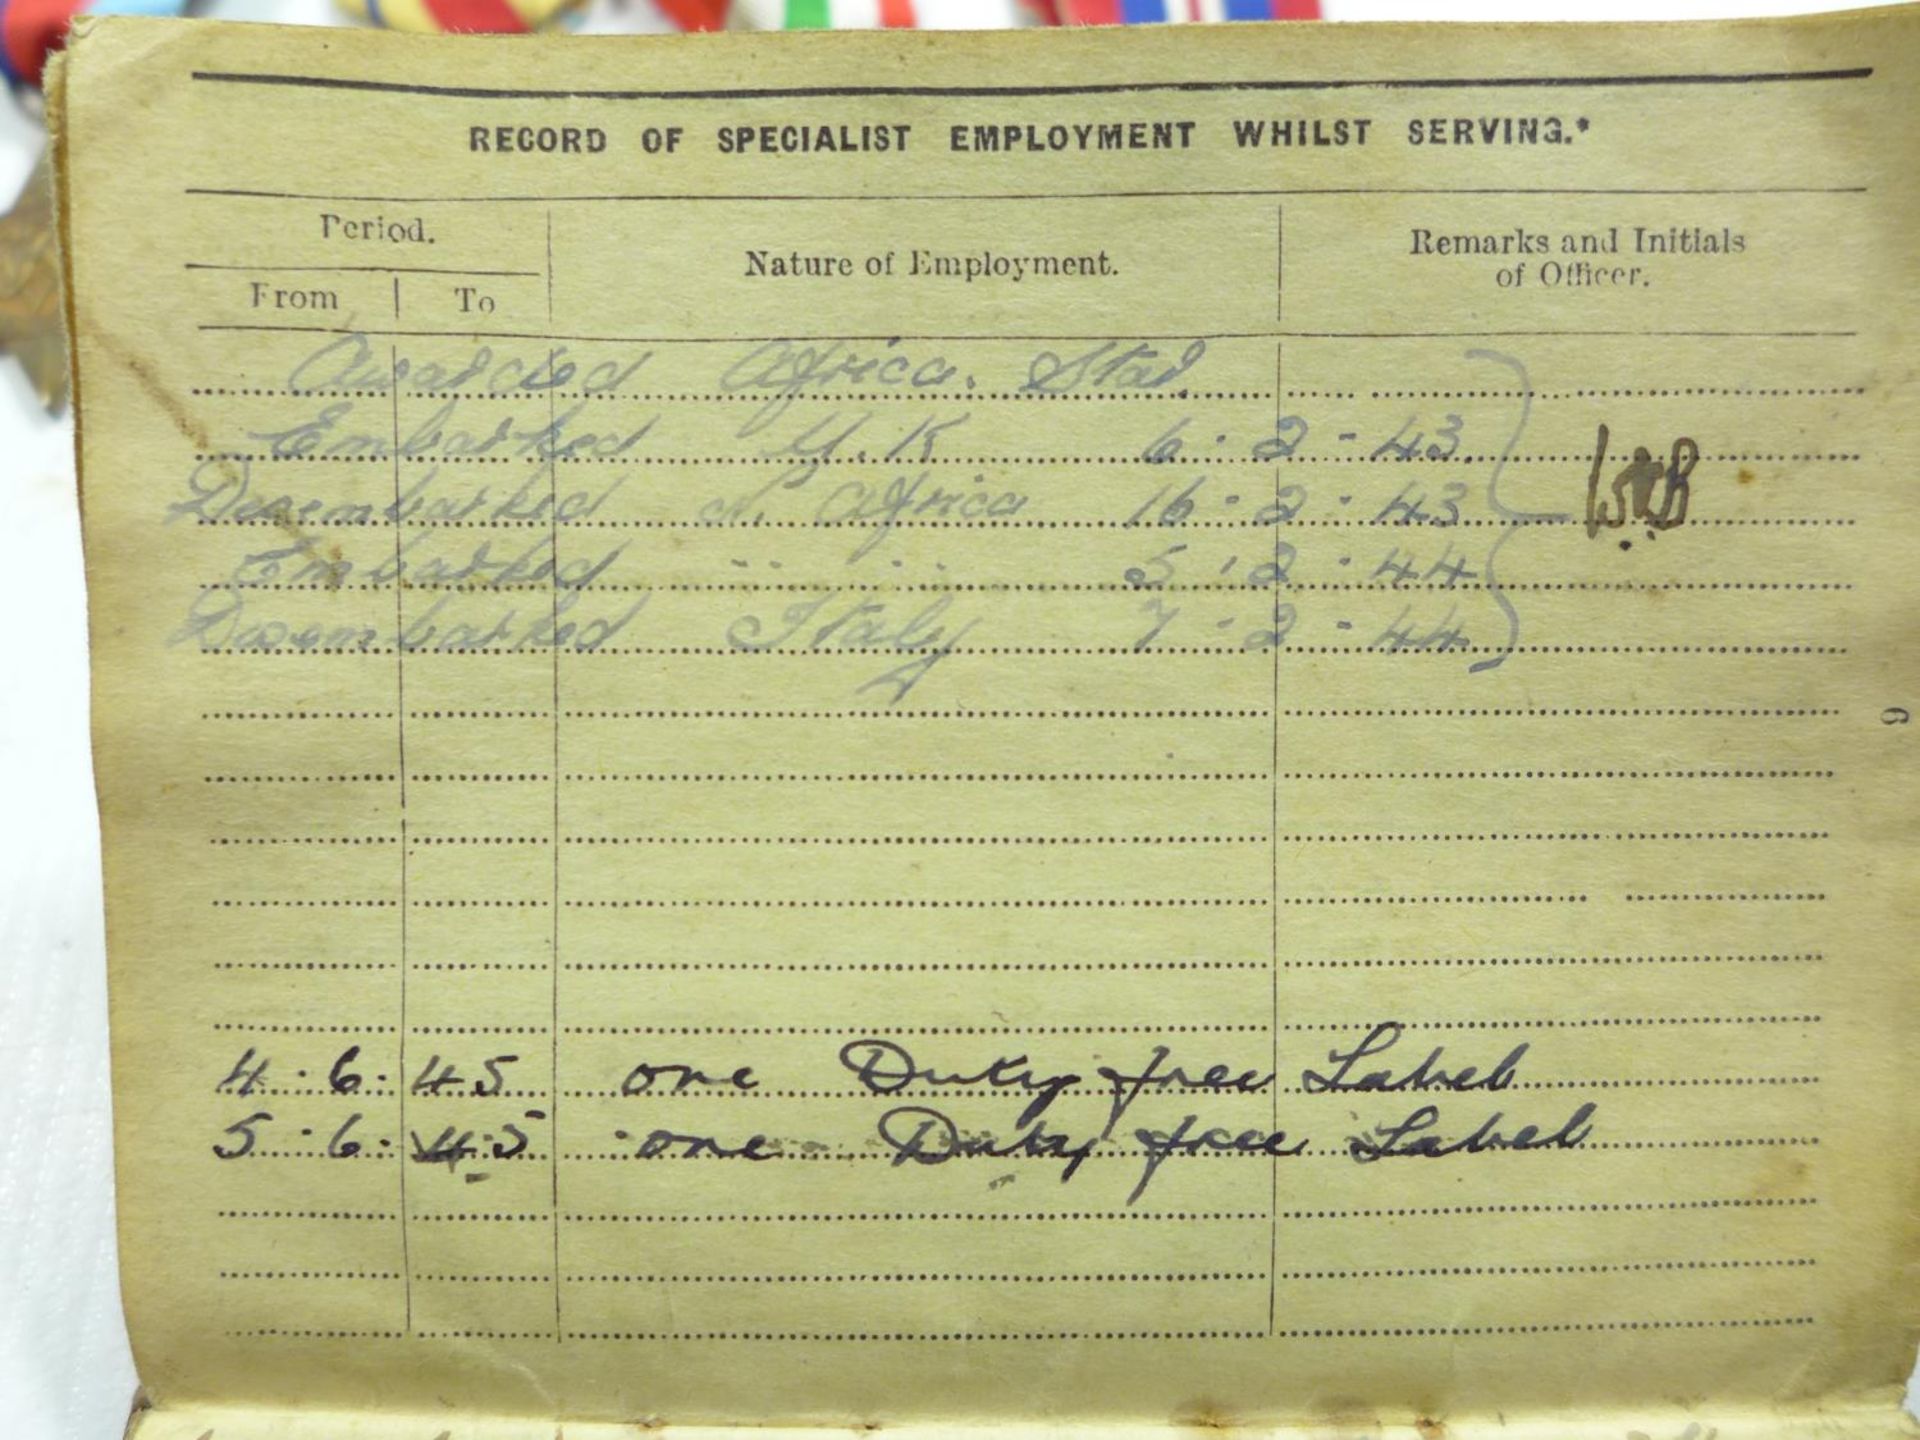 RECORD OF SPECIALIST EMPLOYMENT WHILST SERVING.*
Period.
Nature of Employment.
Remarks and Initials
of Officer.
From To
Awarded Africa. Star.
Embarked U.K 6-2-43
Desembarked N. Africa 16-2-43
Embarked " " 5-2-44
Desembarked Italy 7-2-44
6
4-6-45 one Duty free Label
5-6-45 one Duty free Label